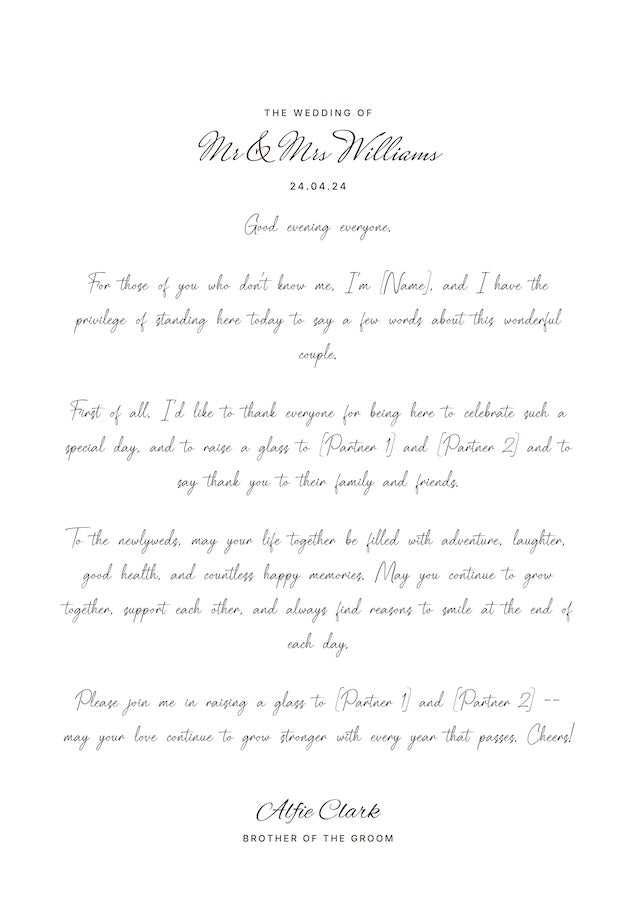 THE WEDDING OF
Mr & Mrs Williams
24.04.24
Good evening everyone,
For those of you who don't know me, I'm [Name], and I have the
privilege of standing here today to say a few words about this wonderful
couple.
First of all, I'd like to thank everyone for being here to celebrate such a
special day, and to raise a glass to [Partner 1] and [Partner 2] and to
say thank you to their family and friends.
To the newlyweds, may your life together be filled with adventure, laughter,
good health, and countless happy memories. May you continue to grow
together, support each other, and always find reasons to smile at the end of
each day.
Please join me in raising a glass to [Partner 1] and [Partner 2] --
may your love continue to grow stronger with every year that passes. Cheers!
Alfie Clark
BROTHER OF THE GROOM